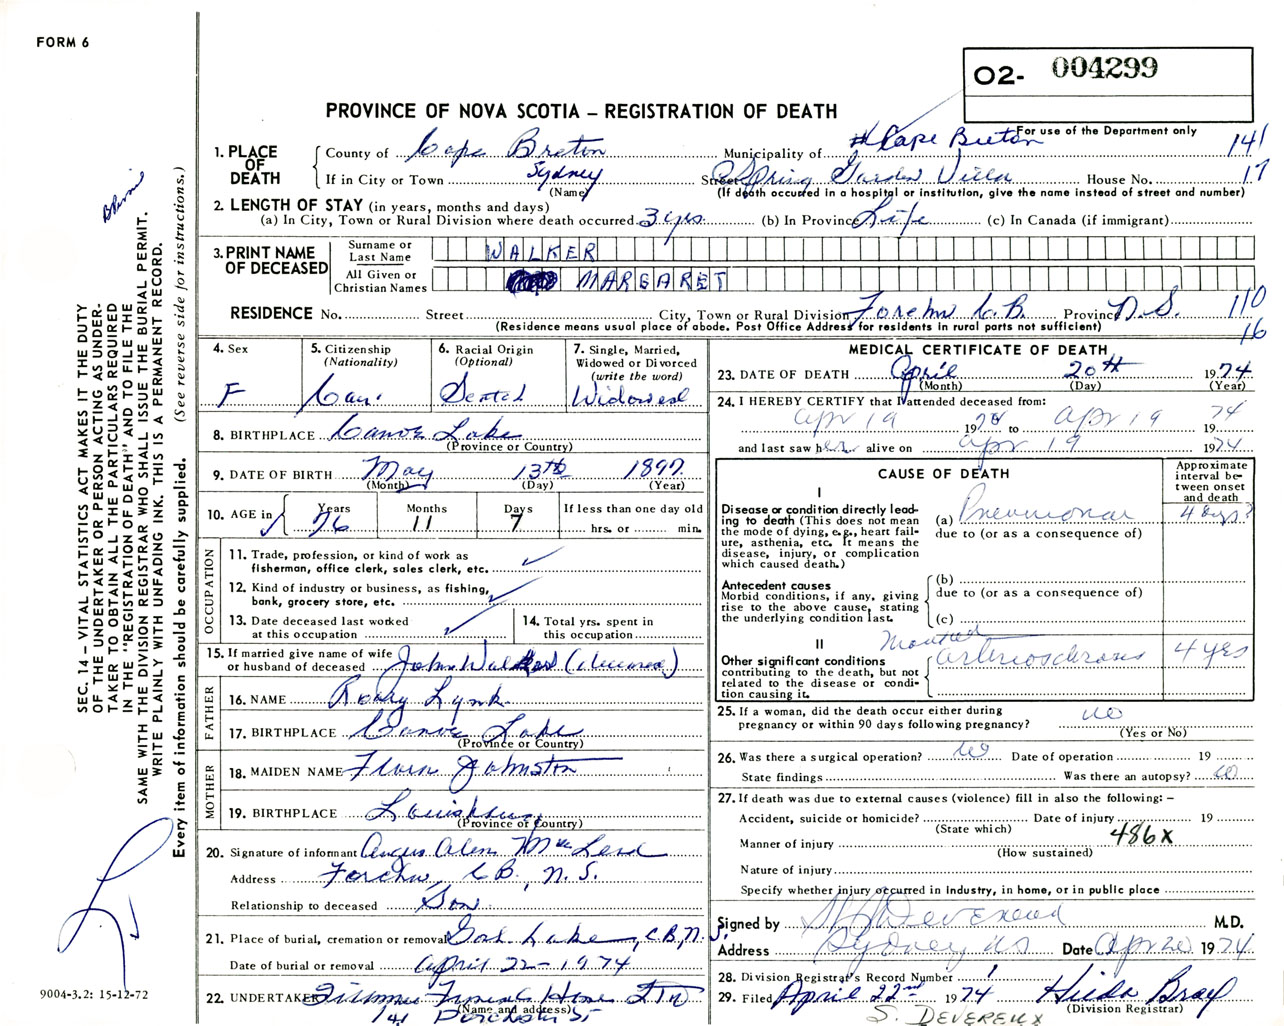 FORM 6
O2- 004299
PROVINCE OF NOVA SCOTIA – REGISTRATION OF DEATH
For use of the Department only
1. PLACE OF DEATH
County of Cape Breton Municipality of Cape Breton 141
If in City or Town Sydney Street Spring Garden Villa House No. 17
(Name) (If death occurred in a hospital or institution, give the name instead of street and number)
2. LENGTH OF STAY (in years, months and days)
(a) In City, Town or Rural Division where death occurred 3 yrs (b) In Province Life (c) In Canada (if immigrant)
3. PRINT NAME OF DECEASED
Surname or Last Name WALKER
All Given or Christian Names MARGARET
RESIDENCE No. Street City, Town or Rural Division Forchu C.B. Province N.S. 110
(Residence means usual place of abode. Post Office Address for residents in rural parts not sufficient) 16
4. Sex F
5. Citizenship (Nationality) Can.
6. Racial Origin (Optional)
7. Single, Married, Widowed or Divorced (write the word) Widowed
8. BIRTHPLACE Canoe Lake
(Province or Country)
9. DATE OF BIRTH May 13th 1897
(Month) (Day) (Year)
10. AGE in Years 76 Months 11 Days 7 If less than one day old hrs. or min.
OCCUPATION
11. Trade, profession, or kind of work as fisherman, office clerk, sales clerk, etc.
12. Kind of industry or business, as fishing, bank, grocery store, etc.
13. Date deceased last worked at this occupation
14. Total yrs. spent in this occupation
15. If married give name of wife or husband of deceased John Walker (deceased)
FATHER
16. NAME Lynk
17. BIRTHPLACE Canoe Lake
(Province or Country)
MOTHER
18. MAIDEN NAME Flora Johnston
19. BIRTHPLACE Louisburg
(Province or Country)
20. Signature of informant Angus Alen McLeod
Address Forchu, C.B., N.S.
Relationship to deceased Son
21. Place of burial, cremation or removal Lake, C.B., N.S.
Date of burial or removal April 22 – 1974
22. UNDERTAKER Funeral Home LTD
(Name and address)
MEDICAL CERTIFICATE OF DEATH
23. DATE OF DEATH April 20th 1974
(Month) (Day) (Year)
24. I HEREBY CERTIFY that I attended deceased from:
Apr 19 19 to Apr 19 1974
and last saw her alive on Apr 19 1974
CAUSE OF DEATH
Approximate interval between onset and death
I
Disease or condition directly leading to death (This does not mean the mode of dying, e.g., heart failure, asthenia, etc. It means the disease, injury, or complication which caused death.)
(a) 4 days?
due to (or as a consequence of)
Antecedent causes
Morbid conditions, if any, giving rise to the above cause, stating the underlying condition last.
(b)
due to (or as a consequence of)
(c)
II
Other significant conditions contributing to the death, but not related to the disease or condition causing it.
arteriosclerosis 4 yrs
25. If a woman, did the death occur either during pregnancy or within 90 days following pregnancy? no
(Yes or No)
26. Was there a surgical operation? no Date of operation 19
State findings Was there an autopsy? no
27. If death was due to external causes (violence) fill in also the following: –
Accident, suicide or homicide? Date of injury 19
(State which) 486X
Manner of injury
(How sustained)
Nature of injury
Specify whether injury occurred in Industry, in home, or in public place
Signed by Devereux M.D.
Address Sydney NS Date Apr 20 1974
28. Division Registrar's Record Number 1
29. Filed April 22nd 1974 Hilda Bray
(Division Registrar)
S. DEVEREUX
SEC. 14 – VITAL STATISTICS ACT MAKES IT THE DUTY
OF THE UNDERTAKER OR PERSON ACTING AS UNDER-
TAKER TO OBTAIN ALL THE PARTICULARS REQUIRED
IN THE "REGISTRATION OF DEATH" AND TO FILE THE
SAME WITH THE DIVISION REGISTRAR WHO SHALL ISSUE THE BURIAL PERMIT.
WRITE PLAINLY WITH UNFADING INK. THIS IS A PERMANENT RECORD.
Every item of information should be carefully supplied. (See reverse side for instructions.)
9004-3.2: 15-12-72